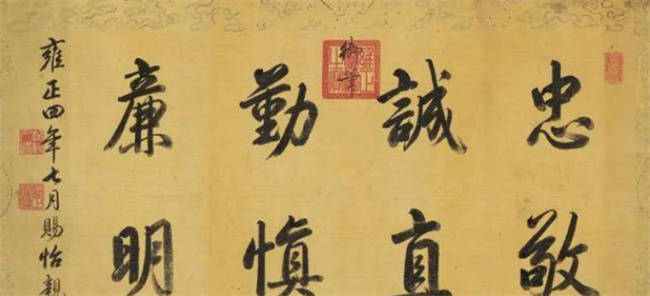 忠敬
誠直
勤慎
廉明
御筆
雍正四年七月賜怡親